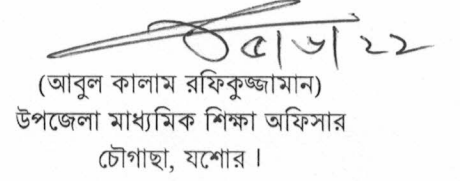 ৫|৬|২২
(আবুল কালাম রফিকুজ্জামান)
উপজেলা মাধ্যমিক শিক্ষা অফিসার
চৌগাছা, যশোর ।